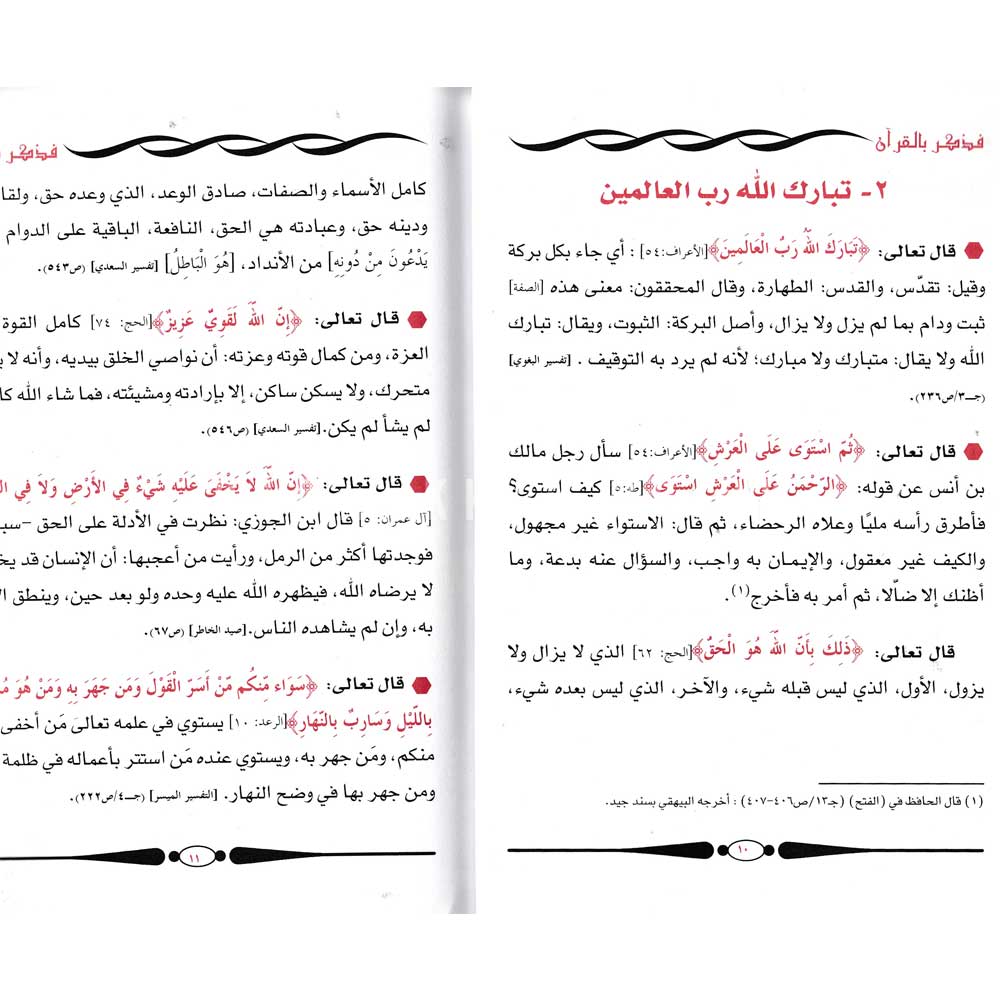 فذكر بالقرآن
٢- تبارك الله رب العالمين
قال تعالى: ﴿تَبَارَكَ اللهُ رَبُّ الْعَالَمِينَ﴾[الأعراف:٥٤] : أي جاء بكل بركة
وقيل: تقدّس، والقدس: الطهارة، وقال المحققون: معنى هذه [الصفة]
ثبت ودام بما لم يزل ولا يزال، وأصل البركة: الثبوت، ويقال: تبارك
الله ولا يقال: متبارك ولا مبارك؛ لأنه لم يرد به التوقيف . [تفسير البغوي]
(جـ٣/ص٢٣٦).
قال تعالى: ﴿ثُمَّ اسْتَوَى عَلَى الْعَرْشِ﴾[الأعراف:٥٤] سأل رجل مالك
بن أنس عن قوله: ﴿الرَّحْمَنُ عَلَى الْعَرْشِ اسْتَوَى﴾[طه:٥] كيف استوى؟
فأطرق رأسه مليًّا وعلاه الرحضاء، ثم قال: الاستواء غير مجهول،
والكيف غير معقول، والإيمان به واجب، والسؤال عنه بدعة، وما
أظنك إلا ضالّا، ثم أمر به فأخرج(١).
قال تعالى: ﴿ذَلِكَ بِأَنَّ اللهَ هُوَ الْحَقُّ﴾[الحج: ٦٢] الذي لا يزال ولا
يزول، الأول، الذي ليس قبله شيء، والآخر، الذي ليس بعده شيء،
(١) قال الحافظ في (الفتح) (جـ١٣/ص٤٠٦-٤٠٧) : أخرجه البيهقي بسند جيد.
١٠
فذكر
كامل الأسماء والصفات، صادق الوعد، الذي وعده حق، ولقا
ودينه حق، وعبادته هي الحق، النافعة، الباقية على الدوام
يَدْعُونَ مِنْ دُونِهِ] من الأنداد، [هُوَ الْبَاطِلُ] [تفسير السعدي] (ص٥٤٣).
قال تعالى: ﴿إِنَّ اللهَ لَقَوِيٌّ عَزِيزٌ﴾[الحج: ٧٤] كامل القوة
العزة، ومن كمال قوته وعزته: أن نواصي الخلق بيديه، وأنه لا
متحرك، ولا يسكن ساكن، إلا بإرادته ومشيئته، فما شاء الله كا
لم يشأ لم يكن.[تفسير السعدي] (ص٥٤٦).
قال تعالى: ﴿إِنَّ اللهَ لَا يَخْفَى عَلَيْهِ شَيْءٌ فِي الْأَرْضِ وَلَا فِي ال
[آل عمران: ٥] قال ابن الجوزي: نظرت في الأدلة على الحق –سب
فوجدتها أكثر من الرمل، ورأيت من أعجبها: أن الإنسان قد يخ
لا يرضاه الله، فيظهره الله عليه وحده ولو بعد حين، وينطق ال
به، وإن لم يشاهده الناس.[صيد الخاطر] (ص٦٧).
قال تعالى: ﴿سَوَاء مِّنكُم مَّنْ أَسَرَّ الْقَوْلَ وَمَن جَهَرَ بِهِ وَمَنْ هُوَ مُ
بِاللَّيْلِ وَسَارِبٌ بِالنَّهَارِ﴾[الرعد: ١٠] يستوي في علمه تعالىَ مَن أخفى
منكم، ومَن جهر به، ويستوي عنده مَن استتر بأعماله في ظلمة
ومن جهر بها في وضح النهار. [التفسير الميسر] (جـ٤/ص٢٢٢).
١١